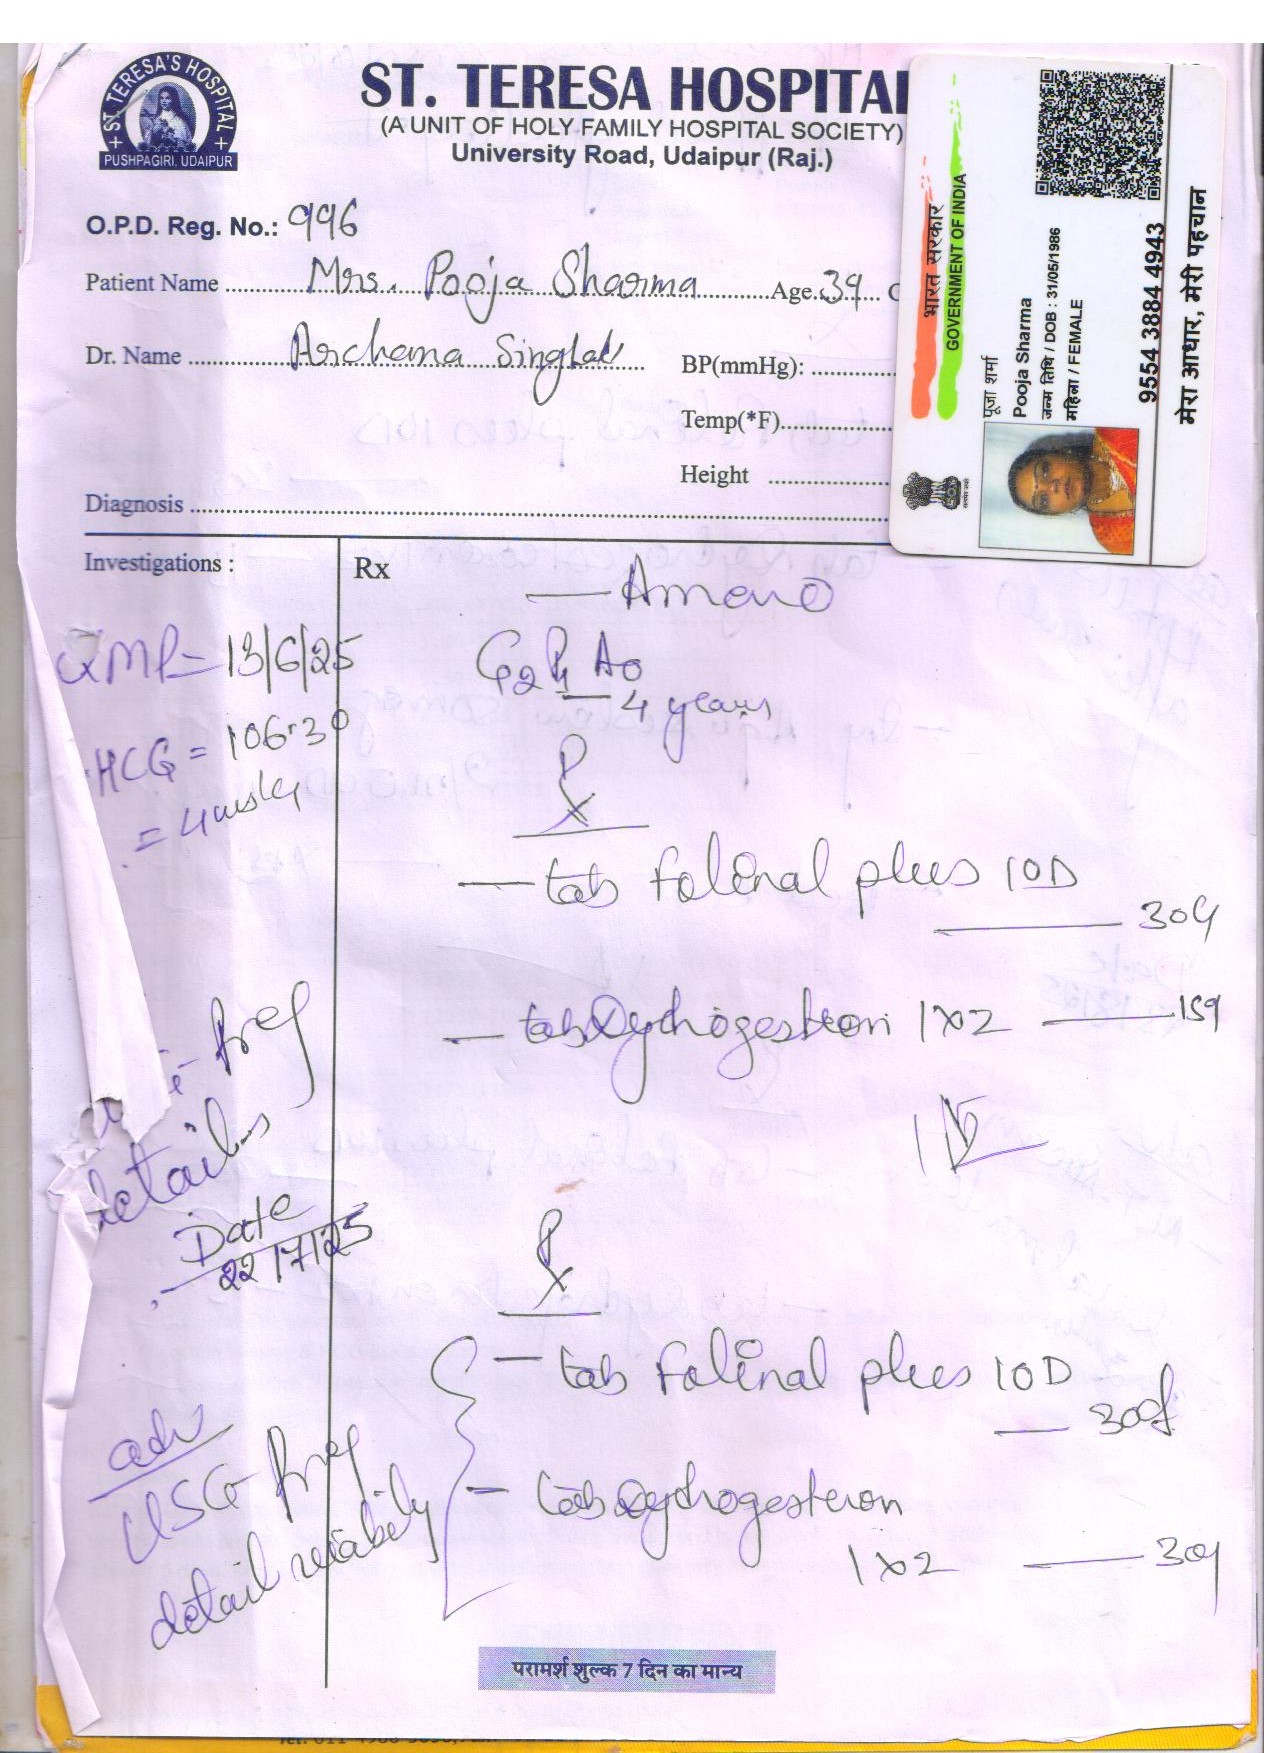 ST. TERESA'S HOSPITAL
PUSHPAGIRI, UDAIPUR
ST. TERESA HOSPITAL
(A UNIT OF HOLY FAMILY HOSPITAL SOCIETY)
University Road, Udaipur (Raj.)
O.P.D. Reg. No.: 996
Patient Name Mrs. Pooja Sharma Age. 39
Dr. Name Archana Singhal BP(mmHg):
Temp(*F)
Height
Diagnosis
भारत सरकार
GOVERNMENT OF INDIA
पूजा शर्मा
Pooja Sharma
जन्म तिथि / DOB : 31/05/1986
महिला / FEMALE
9554 3884 4943
मेरा आधार, मेरी पहचान
Investigations :
Rx
LMP - 13/6/25
HCG = 106.30
= 4 wks
G2 P1 A0
4 years
Rx
- tab Folinal plus 1OD
30
- tab Dydrogesteron 1x2 15
Preg
details
Date
22/7/25
Rx
- tab Folinal plus 1OD
30
- tab Dydrogesteron
1x2 30
adv
USG Preg
detail viability
परामर्श शुल्क 7 दिन का मान्य